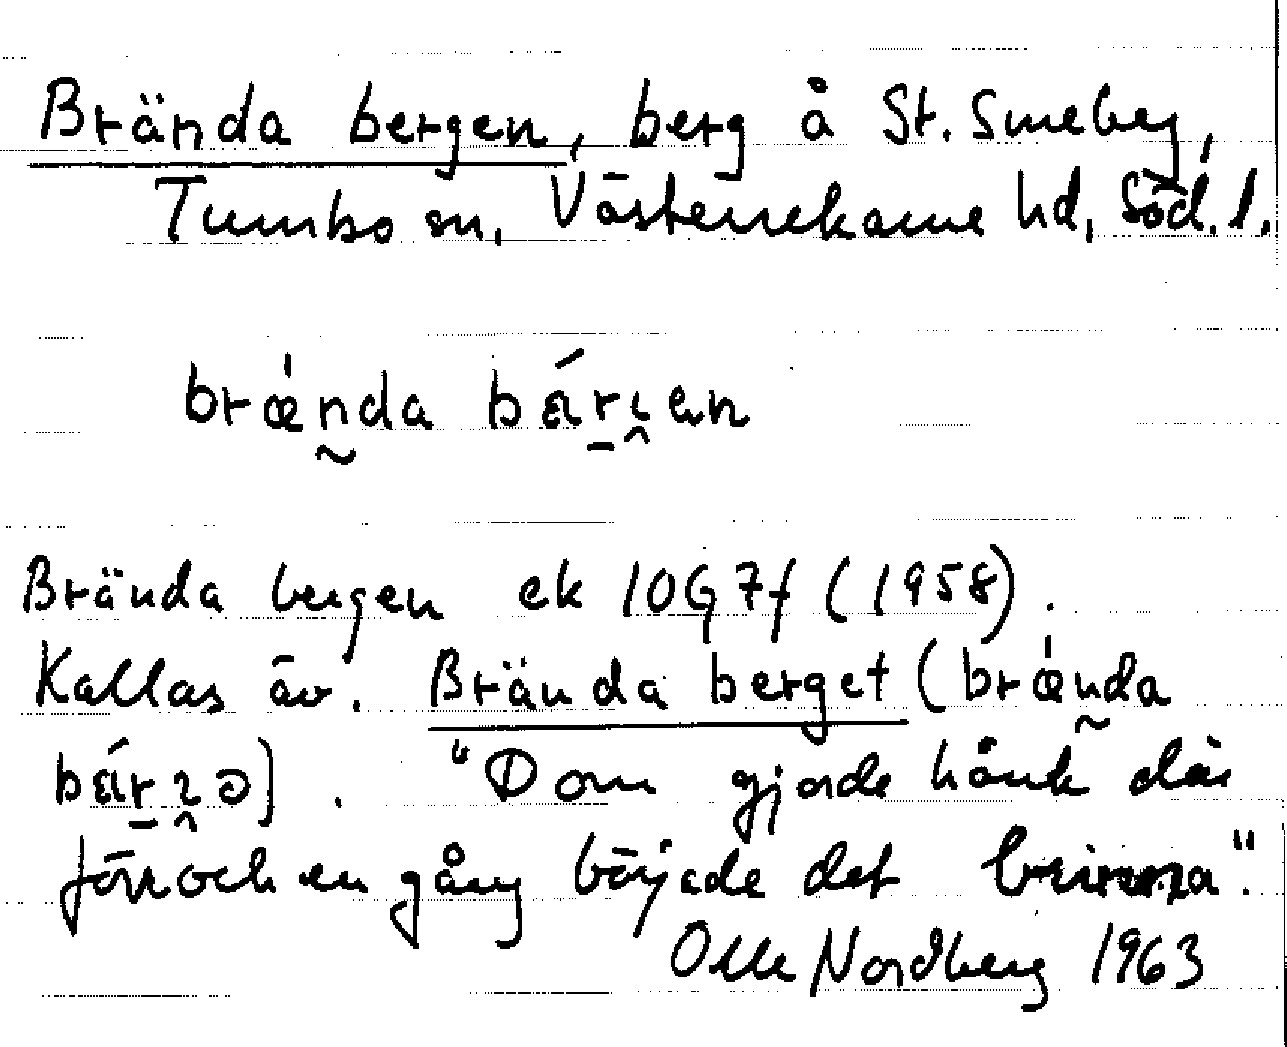 Brända bergen, berg å St. Sneby,
Tumbo sn, Västerrekarne hd, Söd. l.
brǽn̰da bá̈r̠ɩ̭en
Brända bergen ek 10G7f (1958).
Kallas äv. Brända berget (brǽn̰da
bá̈r̠ɩ̭ə). "Dom gjorde hånk där
förr och en gång började det brinna".
Olle Nordberg 1963